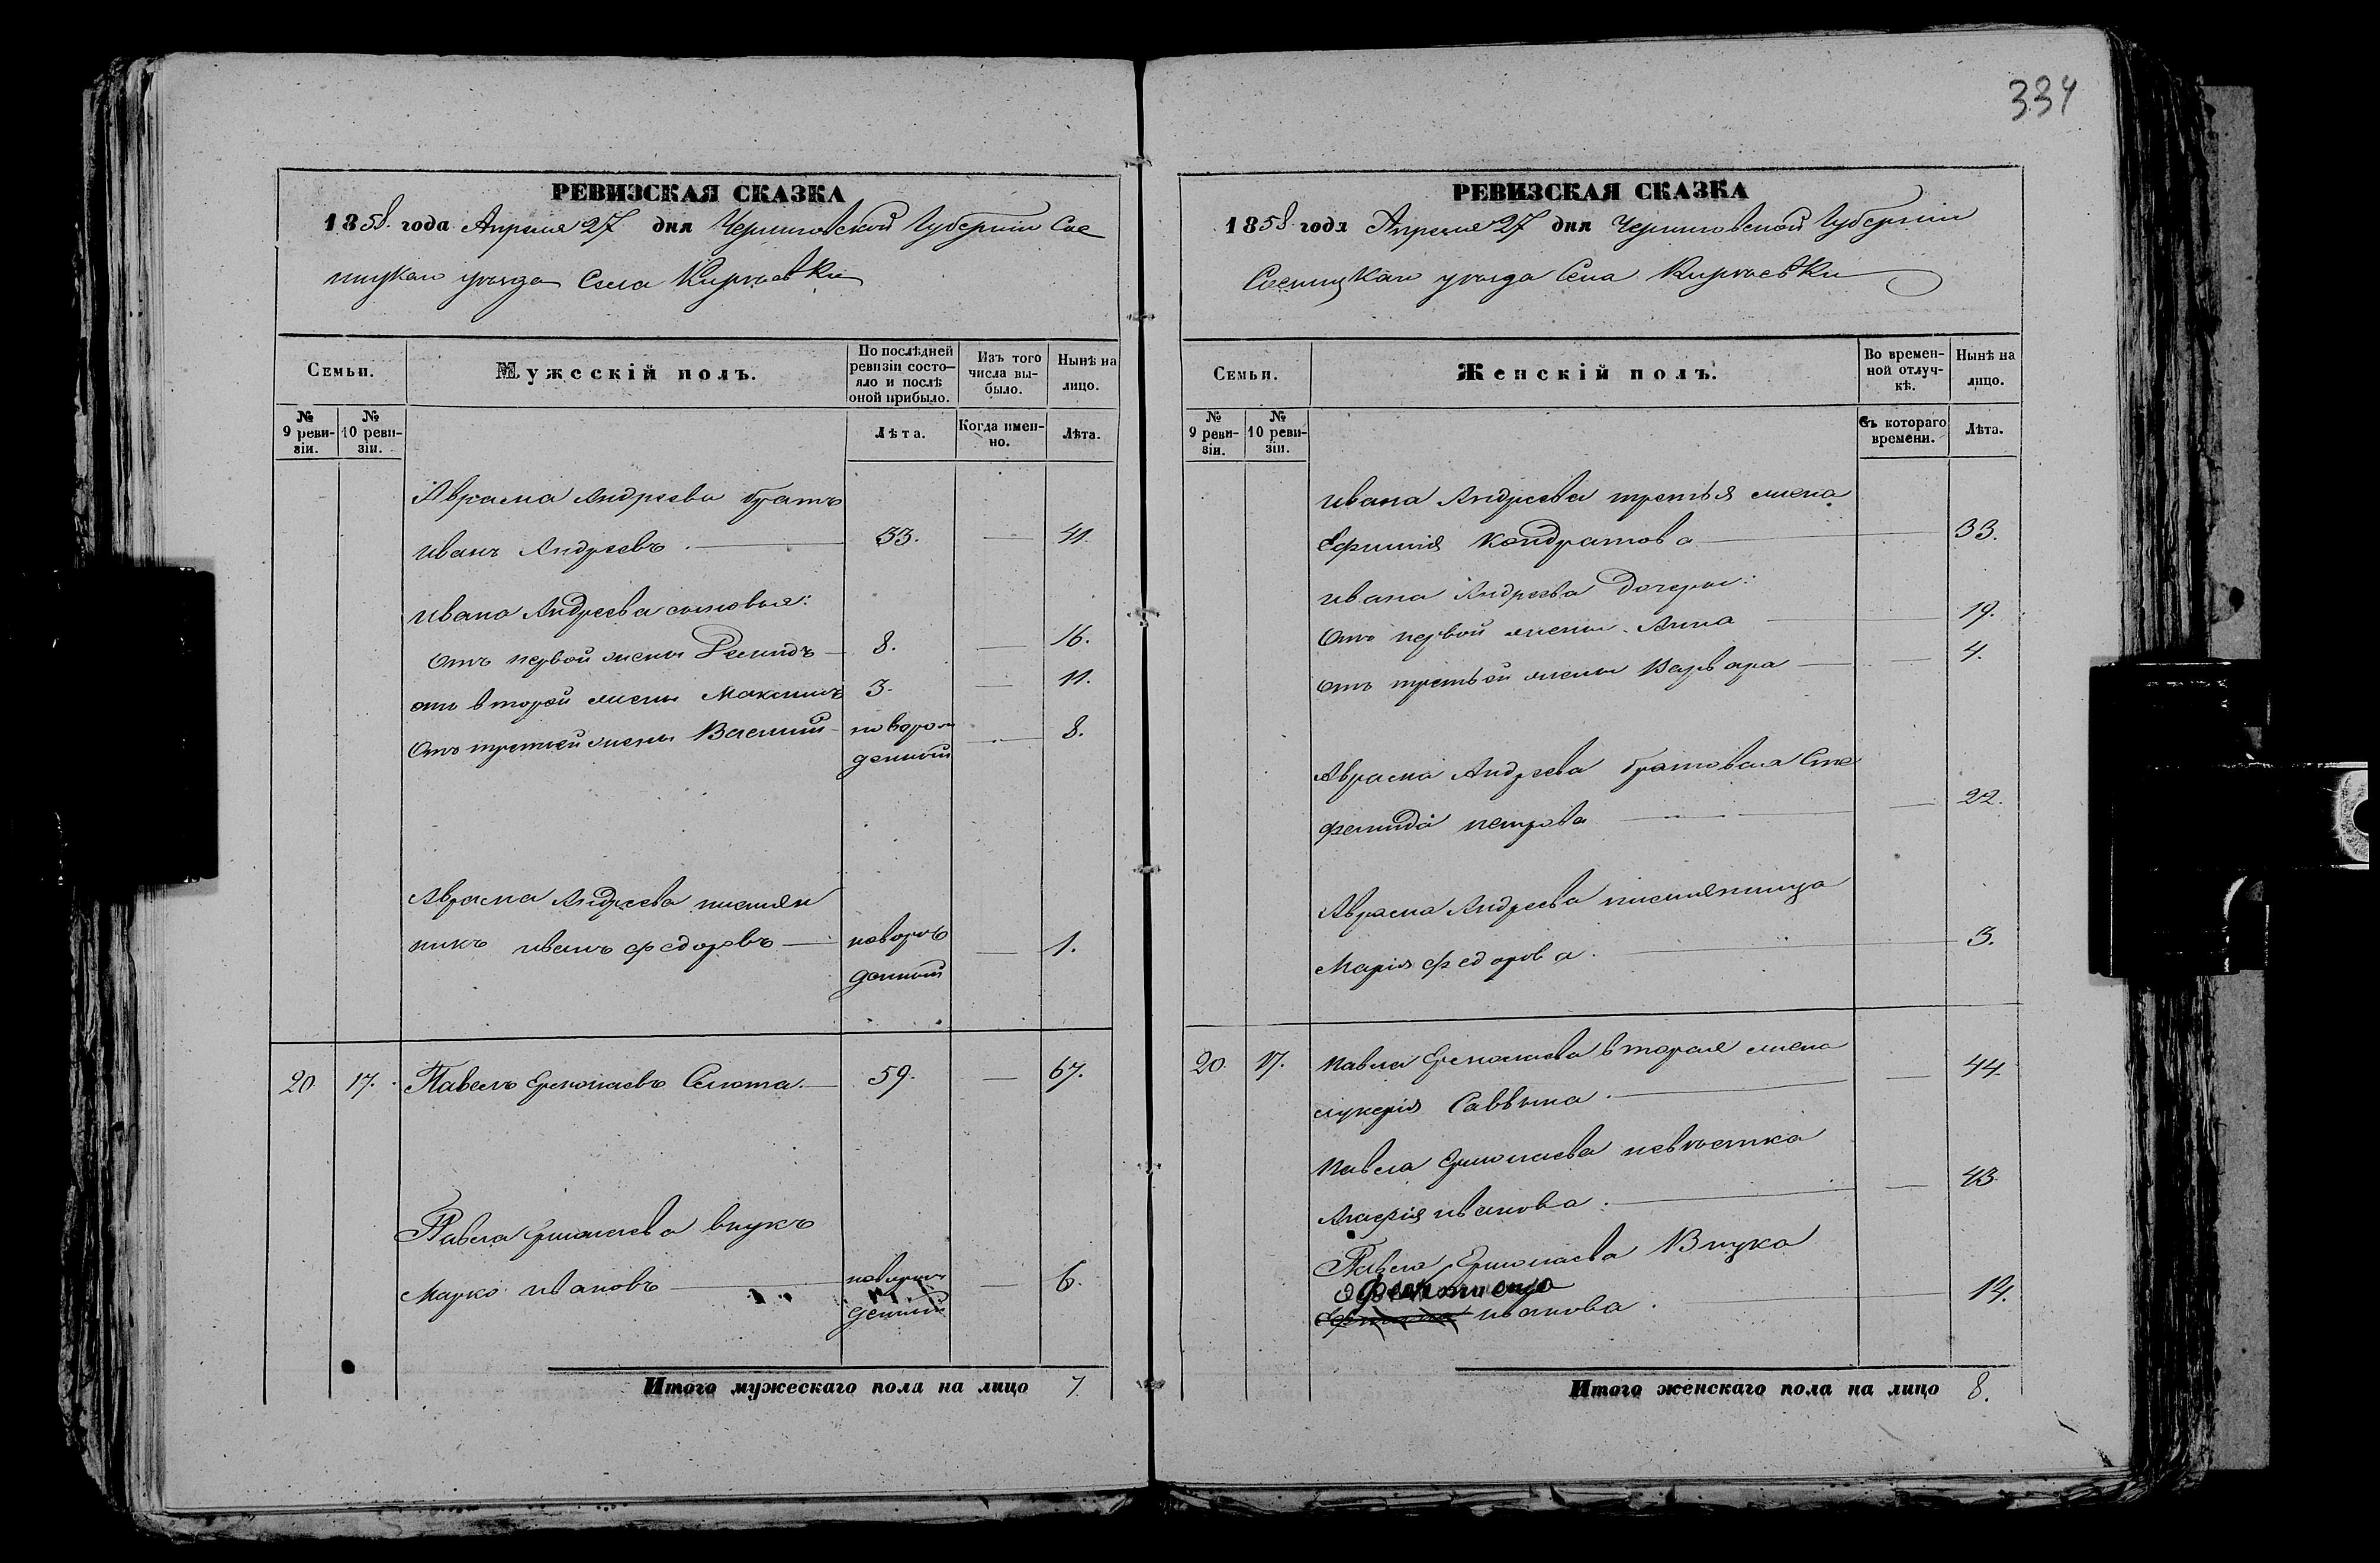 334
РЕВИЗСКАЯ СКАЗКА
1858 года Апреля 27 дня Черниговской Губернии Сос
ницкаго уезда Села Киріевки
Семьи.
Мужескій полъ.
По послѣдней ревизіи состояло и послѣ оной прибыло.
Изъ того числа выбыло.
Нынѣ на лицо.
№ 9 реви-зіи.
№ 10 реви-зіи.
Лѣта.
Когда имен-но.
Лѣта.
Аврама Андреева братъ
Иванъ Андреевъ 33. 41
Ивана Андреева сыновья:
отъ первой жены 8. 16.
отъ второй жены Максимъ 3. 11.
отъ третьей жены Василий новорож 8.
денный
Аврама Андреева племян
никъ иванъ федоровъ новорож 1.
денный
20 17. Павелъ Ермолаевъ Селюта 59. 67.
Павла Ермолаева внукъ
Марко ивановъ новорож 6.
денный
Итого мужескаго пола на лицо 7
РЕВИЗСКАЯ СКАЗКА
1858 года Апреля 27 дня Черниговской Губерніи
Сосницкаго уезда Села Киріевки
Семьи.
Женскій полъ.
Во времен-ной отлуч-кѣ.
Нынѣ на лицо.
№ 9 реви-зіи.
№ 10 реви-зіи.
Съ котораго времени.
Лѣта.
Ивана Андреева третья жена
Ефимія Кондратова 33.
Ивана Андреева Дочери:
Отъ первой жены Анна 19.
отъ третьей жены Варвара 4.
Аврама Андреева братовая Сте
фанида петрова 22.
Аврама Андреева племянница
Марія федорова 3.
20. 17. Павла Ермолаева вторая жена
лукерія Саввина 44
Павла Ермолаева невестка
иванова 43
Павла Ермолаева Внука
иванова 14.
Итого женскаго пола на лицо 8.